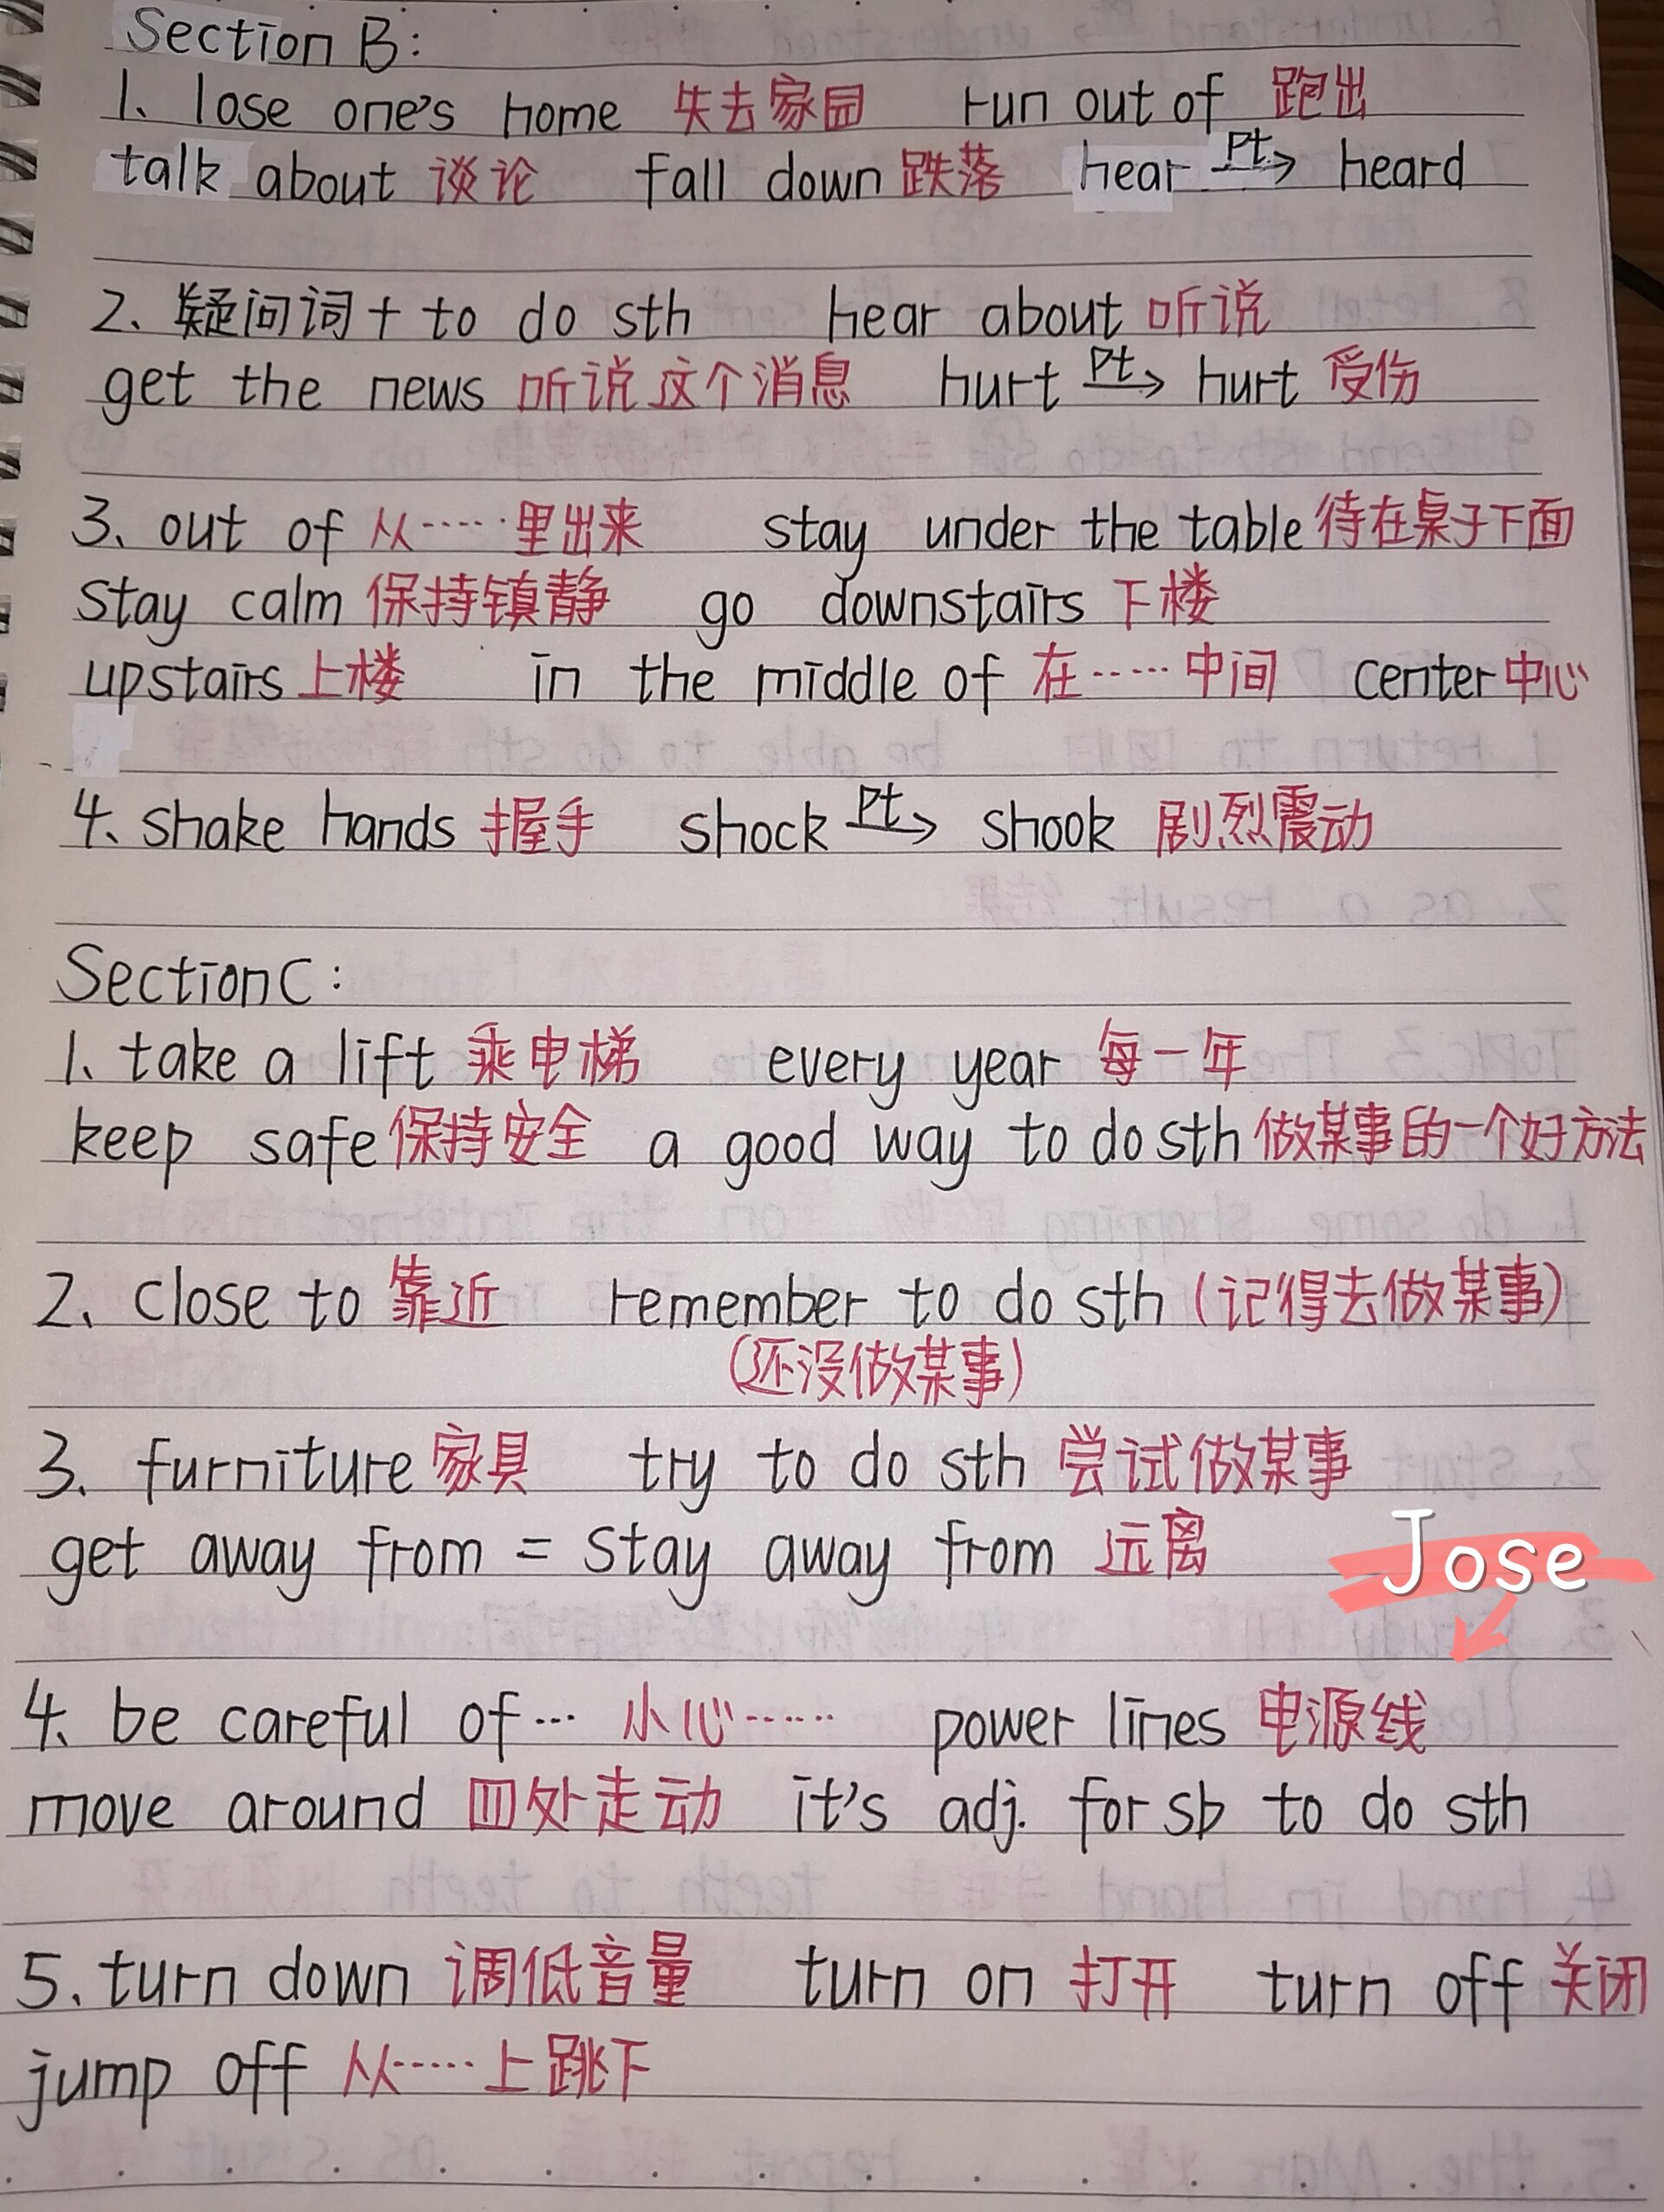 Section B:
1、lose one's home 失去家园 run out of 跑出
talk about 谈论 fall down 跌落 hear Pt→ heard
2、疑问词+to do sth hear about 听说
get the news 听说这个消息 hurt Pt→ hurt 受伤
3、out of 从……里出来 stay under the table 待在桌子下面
stay calm 保持镇静 go downstairs 下楼
upstairs 上楼 in the middle of 在……中间 center 中心
4、shake hands 握手 shock Pt→ shook 剧烈震动
Section C:
1、take a lift 乘电梯 every year 每一年
keep safe 保持安全 a good way to do sth 做某事的一个好方法
2、close to 靠近 remember to do sth (记得去做某事)
(还没做某事)
3、furniture 家具 try to do sth 尝试做某事
get away from = stay away from 远离
Jose
4、be careful of… 小心…… power lines 电源线
move around 四处走动 it's adj. for sb to do sth
5、turn down 调低音量 turn on 打开 turn off 关闭
jump off 从……上跳下